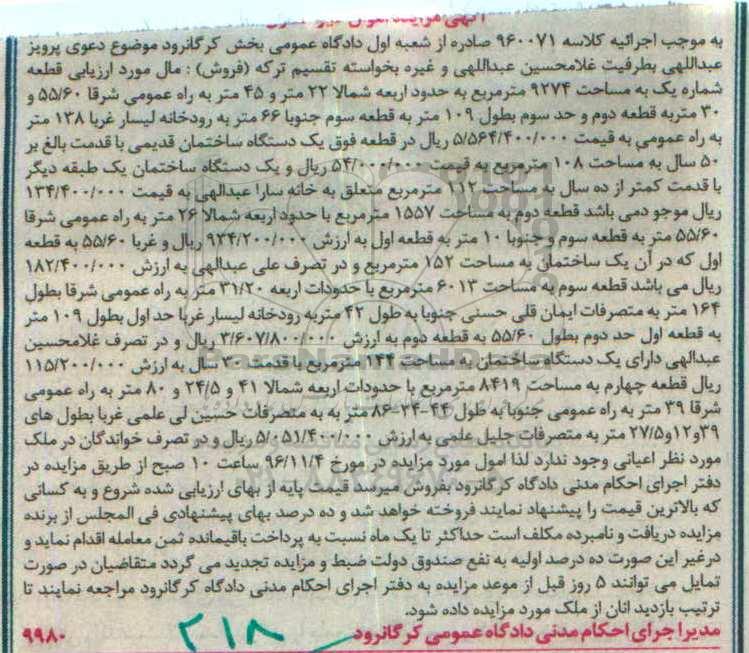 آگهی مزایده اموال غیر منقول
به موجب اجرائیه کلاسه ۹۶۰۰۷۱ صادره از شعبه اول دادگاه عمومی بخش کرگانرود موضوع دعوی پرویز
عبداللهی بطرفیت غلامحسین عبداللهی و غیره بخواسته تقسیم ترکه (فروش) : مال مورد ارزیابی قطعه
شماره یک به مساحت ۹۲۷۴ مترمربع به حدود اربعه شمالا ۲۲ متر و ۴۵ متر به راه عمومی شرقا ۵۵/۶۰ و
۳۰ متربه قطعه دوم و حد سوم بطول ۱۰۹ متر به قطعه سوم جنوبا ۶۶ متر به رودخانه لیسار غربا ۱۳۸ متر
به راه عمومی به قیمت ۵/۵۶۴/۴۰۰/۰۰۰ ریال در قطعه فوق یک دستگاه ساختمان قدیمی با قدمت بالغ بر
۵۰ سال به مساحت ۱۰۸ مترمربع به قیمت ۵۴/۰۰۰/۰۰۰ ریال و یک دستگاه ساختمان یک طبقه دیگر
با قدمت کمتر از ده سال به مساحت ۱۱۲ مترمربع متعلق به خانه سارا عبدالهی به قیمت ۱۳۴/۴۰۰/۰۰۰
ریال موجو دمی باشد قطعه دوم به مساحت ۱۵۵۷ مترمربع با حدود اربعه شمالا ۲۶ متر به راه عمومی شرقا
۵۵/۶۰ متر به قطعه سوم و جنوبا ۱۰ متر به قطعه اول به ارزش ۹۳۴/۲۰۰/۰۰۰ ریال و غربا ۵۵/۶۰ به قطعه
اول که در آن یک ساختمان به مساحت ۱۵۲ مترمربع و در تصرف علی عبدالهی به ارزش ۱۸۲/۴۰۰/۰۰۰
ریال می باشد قطعه سوم به مساحت ۶۰۱۳ مترمربع با حدودات اربعه ۳۱/۲۰ متر به راه عمومی شرقا بطول
۱۶۴ متر به متصرفات ایمان قلی حسنی جنوبا به طول ۴۲ متربه رودخانه لیسار غربا حد اول بطول ۱۰۹ متر
به قطعه اول حد دوم بطول ۵۵/۶۰ به قطعه دوم به ارزش ۳/۶۰۷/۸۰۰/۰۰۰ ریال و در تصرف غلامحسین
عبدالهی دارای یک دستگاه ساختمان به مساحت ۱۴۴ مترمربع با قدمت ۳۰ سال به ارزش ۱۱۵/۲۰۰/۰۰۰
ریال قطعه چهارم به مساحت ۸۴۱۹ مترمربع با حدودات اربعه شمالا ۴۱ و ۲۴/۵ و ۸۰ متر به راه عمومی
شرقا ۳۹ متر به راه عمومی جنوبا به طول ۴۴-۳۴-۸۶ متر به به متصرفات حسین لی علمی غربا بطول های
۳۹و۱۲و۲۷/۵ متر به متصرفات جلیل علمی به ارزش ۵/۰۵۱/۴۰۰/۰۰۰ ریال و در تصرف خواندگان در ملک
مورد نظر اعیانی وجود ندارد لذا امول مورد مزایده در مورخ ۹۶/۱۱/۴ ساعت ۱۰ صبح از طریق مزایده در
دفتر اجرای احکام مدنی دادگاه کرگانرود بفروش میرسد قیمت پایه از بهای ارزیابی شده شروع و به کسانی
که بالاترین قیمت را پیشنهاد نمایند فروخته خواهد شد و ده درصد بهای پیشنهادی فی المجلس از برنده
مزایده دریافت و نامبرده مکلف است حداکثر تا یک ماه نسبت به پرداخت باقیمانده ثمن معامله اقدام نماید و
درغیر این صورت ده درصد اولیه به نفع صندوق دولت ضبط و مزایده تجدید می گردد متقاضیان در صورت
تمایل می توانند ۵ روز قبل از موعد مزایده به دفتر اجرای احکام مدنی دادگاه کرگانرود مراجعه نمایند تا
ترتیب بازدید انان از ملک مورد مزایده داده شود.
مدیرا جرای احکام مدنی دادگاه عمومی کرگانرود
۲۱۸
۹۹۸۰